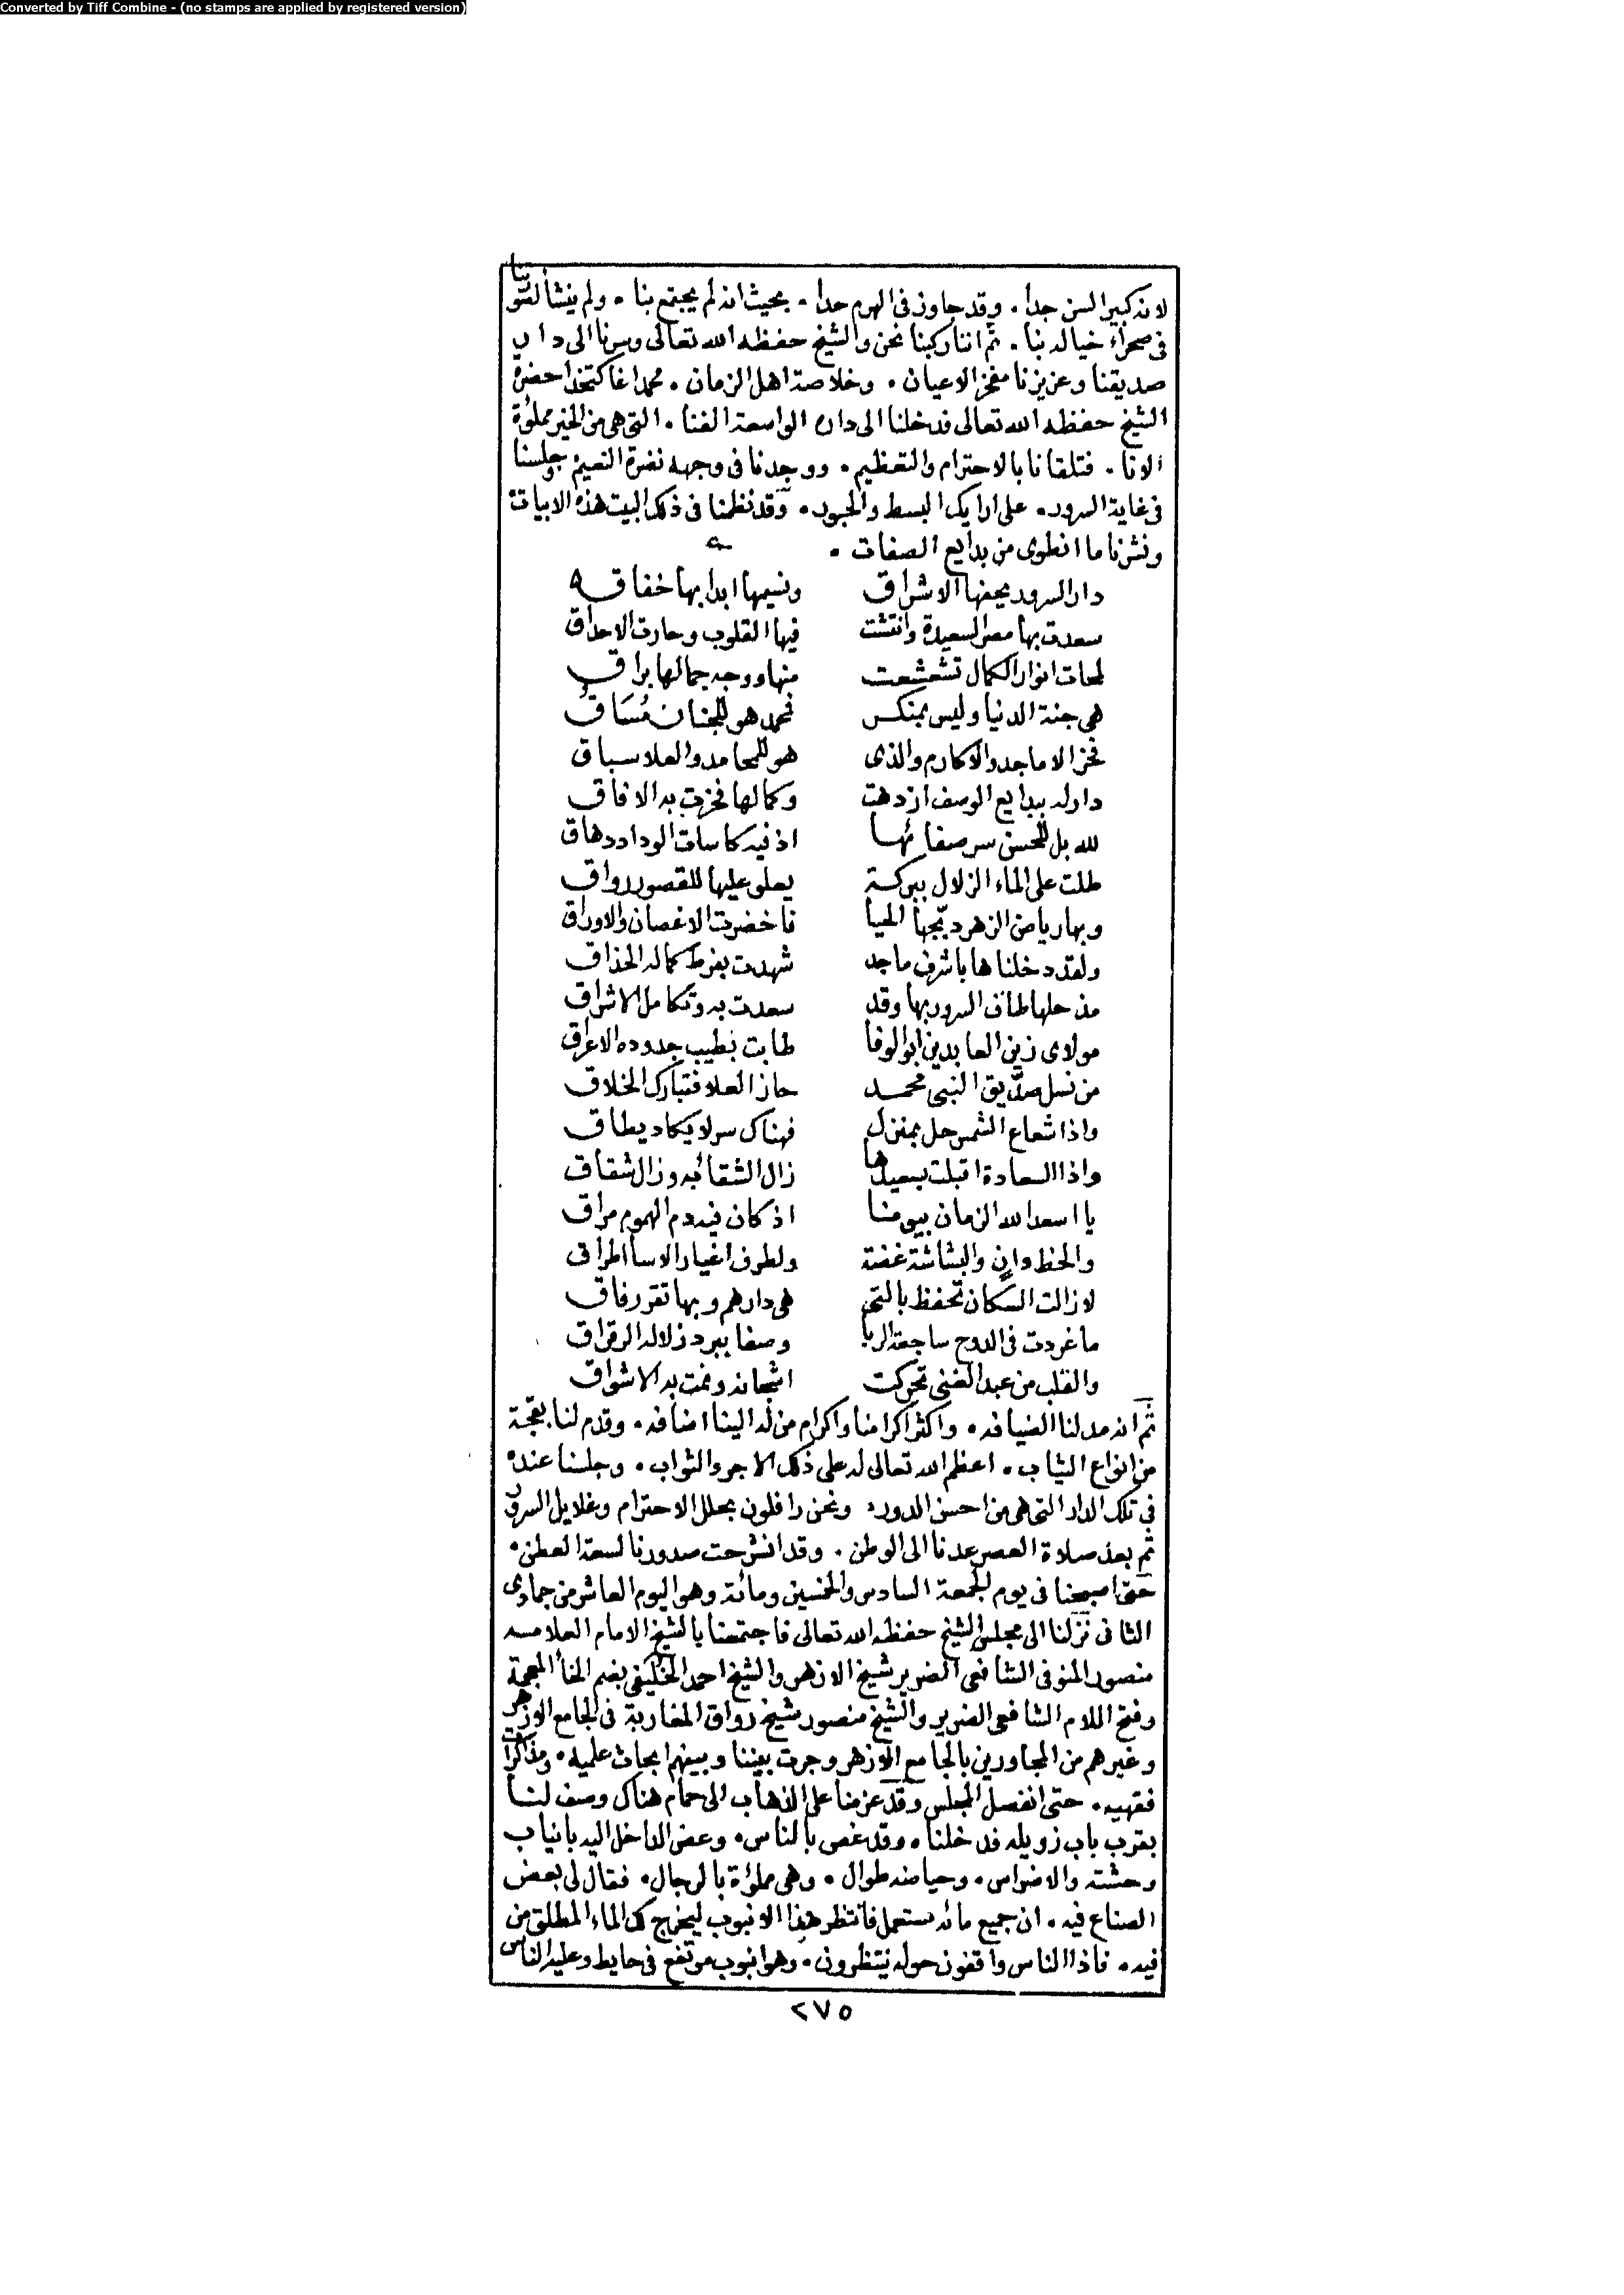 Converted by Tiff Combine - (no stamps are applied by registered version)
لانه كبير السن جدا . وقد جاوز فى الهرم حدا . بحيث انه لم يجتمع بنا . ولم ينشأ
فى صحراء خياله بنا . ثم اننا ركبنا نحن والشيخ حفظه الله تعالى وسرنا الى دار
صديقنا وعزيزنا مفخر الاعيان . وخلاصة اهل الزمان . محمد اغا كتخدا حضرة
الشيخ حفظه الله تعالى فدخلنا الى داره الواسعة الفنا . التى هى من الخير مملوءة
الانا . فتلقانا بالاحترام والتعظيم . ووجدنا فى وجهه نضرة النعيم وجلسنا
فى غاية السرور . على ارايك البسط والحبور . وقد نظمنا فى ذلك البيت هذه الابيات
ونشرنا ما انطوى من بدايع الصفات .
دار السرور يحفها الاشراق ونسيمها ابدا بها خفاق
سعدت بها مصر السعيدة وانتشت فيها القلوب وحارت الاحداق
لمحات انوار الكمال تشعشعت منها ووجه جمالها براق
هى جنة الدنيا وليس بمنكر فمحمد هو للجنان مُسَاقُ
فخر الاماجد والاكارم والذى هو للمحامد والعلا سباق
دار له ببدايع الوصف ازدهت وكمالها فخرت به الافاق
لله بل للحسن سر صفائها اذ فيه كاسات الوداد دهاق
طلت على الماء الزلال ببركة يعلى عليها للقصور رواق
وبها رياض الزهر دبّجها الحيا فاخضرت الاغصان والاوراق
ولقد دخلناها باشرف ماجد شهدت بفرط كماله الحذاق
مذ حلها طاف السرور بها وقد سعدت به وتكامل الاشراق
مولاى زين العابدين ابو الوفا طابت بطيب جدوده الاعراق
من نسل صدّيق النبى محمد حاز العلا فتبارك الخلاق
واذا شعاع الشمس حل بمنزل فهناك سر لا يكاد يطاق
واذا السعادة اقبلت بسعيدها زال الشقا به وزال شقاق
يا اسعد الله الزمان بيومنا اذ كان فيه دم الهموم مراق
والحظ دانٍ والبشاشة غضة ولطرف اغيار الاسا اطراق
لا زالت السكان تحفظ بالتى هى دارهم وبها تقر رفاق
ما غردت فى الدوح ساجعة الربا وصفا ببرد زلاله الرقراق
والقلب من عبد الغنى تحركت اشجانه ونمت به الاشواق
ثم انه مد لنا الضيافه . واكثر اكرامنا واكرام من له الينا اضافه . وقدم لنا بقجة
من انواع الثياب . اعظم الله تعالى له على ذلك الاجر والثواب . وجلسنا عنده
فى تلك الدار التى هى من احسن الدور . ونحن رافلون بحلل الاحترام وغلايل السرور
ثم بعد صلاة العصر عدنا الى الوطن . وقد انشرحت صدورنا لسعة العطن .
حتى اصبحنا فى يوم الجمعة السادس والخمسين ومائة وهو اليوم العاشر من جمادى
الثانى نزلنا الى مجلس الشيخ حفظه الله تعالى فاجتمعنا بالشيخ الامام العلامه
منصور المنوفى الشافعى الضرير شيخ الازهر والشيخ احمد الخُليفى بضم الخأ المعجمة
وفتح اللام الشافعى الضرير والشيخ منصور شيخ رواق المغاربة فى الجامع الازهر
وغيرهم من المجاورين بالجامع الازهر وجرت بيننا وبينهم ابحاث علميه . ومذاكرات
فقهيه . حتى انفصل المجلس وقد عزمنا على الذهاب الى حمام هناك وصف لنا
بقرب باب زويله فدخلنا . وقد غص بالناس . وعض الداخل اليه بانياب
وحشته والاضراس . وحياضه طوال . وهى مملوءة بالرجال . فقال لى بعض
الصناع فيه . ان جميع مائه مستعمل فانتظر هذا الانبوب ليخرج لك الماء المطلق من
فيه . فاذا الناس واقفون حوله ينتظرون . وهو انبوب مرتفع فى حايط وعليه الناس
٢٧٥